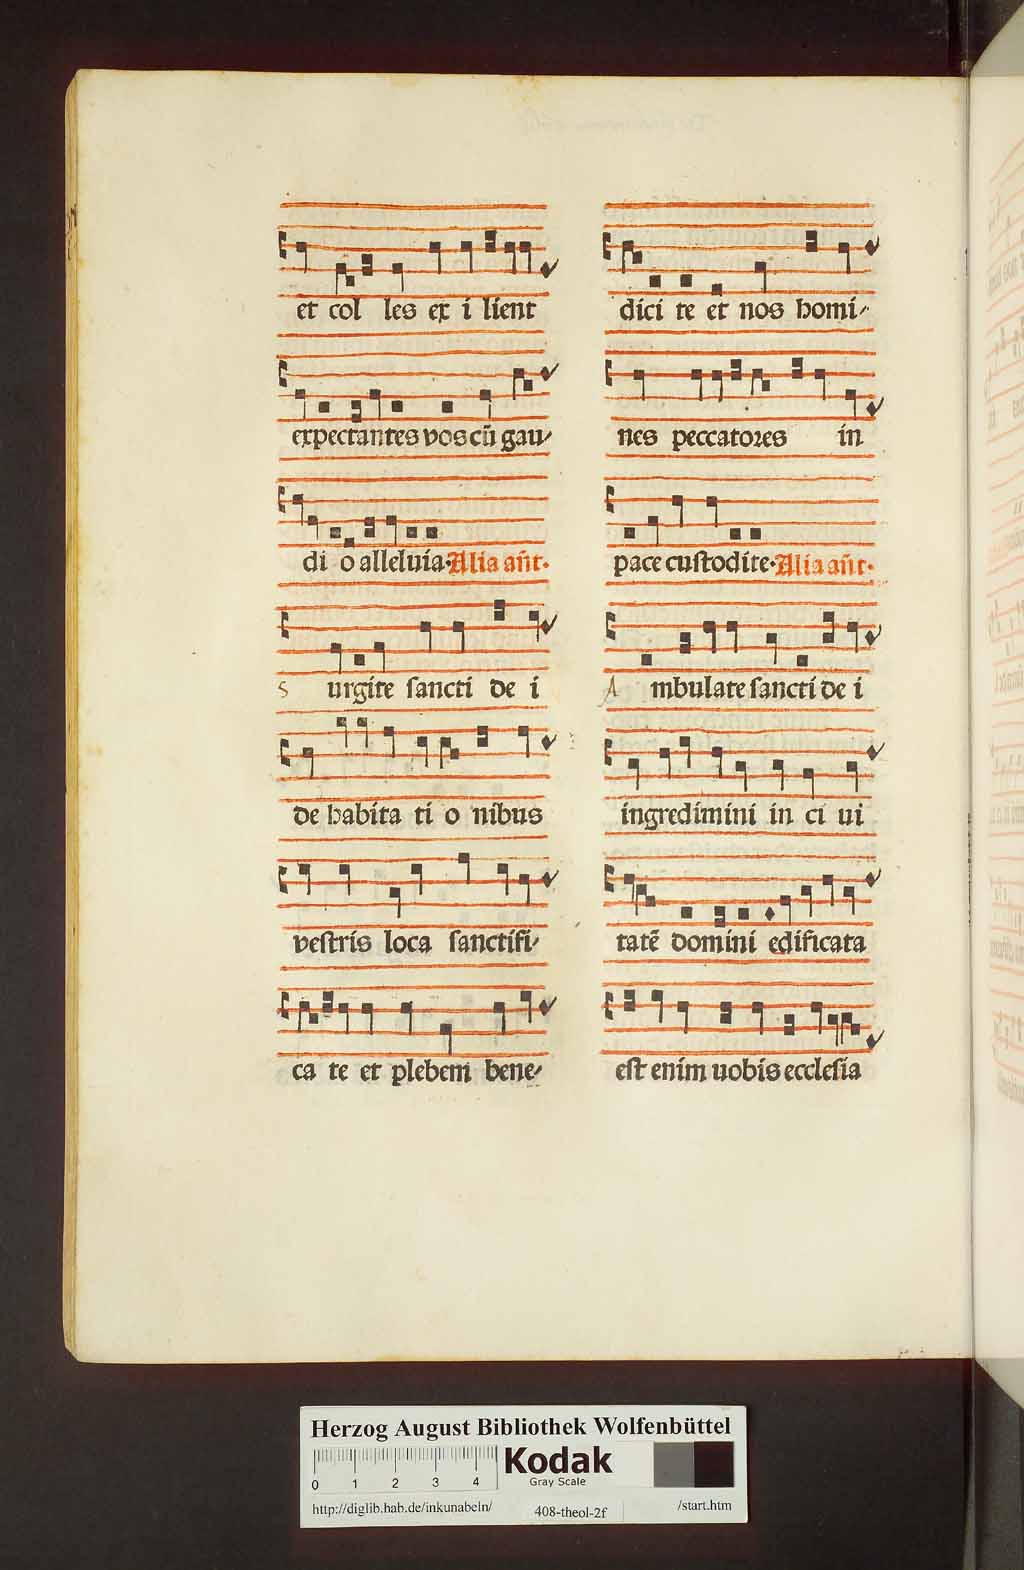 et col les ex i lient
expectantes vos cū gau-
di o alleluia. Alia añt.
s urgite sancti de i
de habita ti o nibus
vestris loca sanctifi-
ca te et plebem bene-
dici te et nos homi-
nes peccatores in
pace custodite. Alia añt.
A mbulate sancti de i
ingredimini in ci ui
tatē domini edificata
est enim uobis ecclesia
Herzog August Bibliothek Wolfenbüttel
0 1 2 3 4
Kodak
Gray Scale
http://diglib.hab.de/inkunabeln/ 408-theol-2f /start.htm